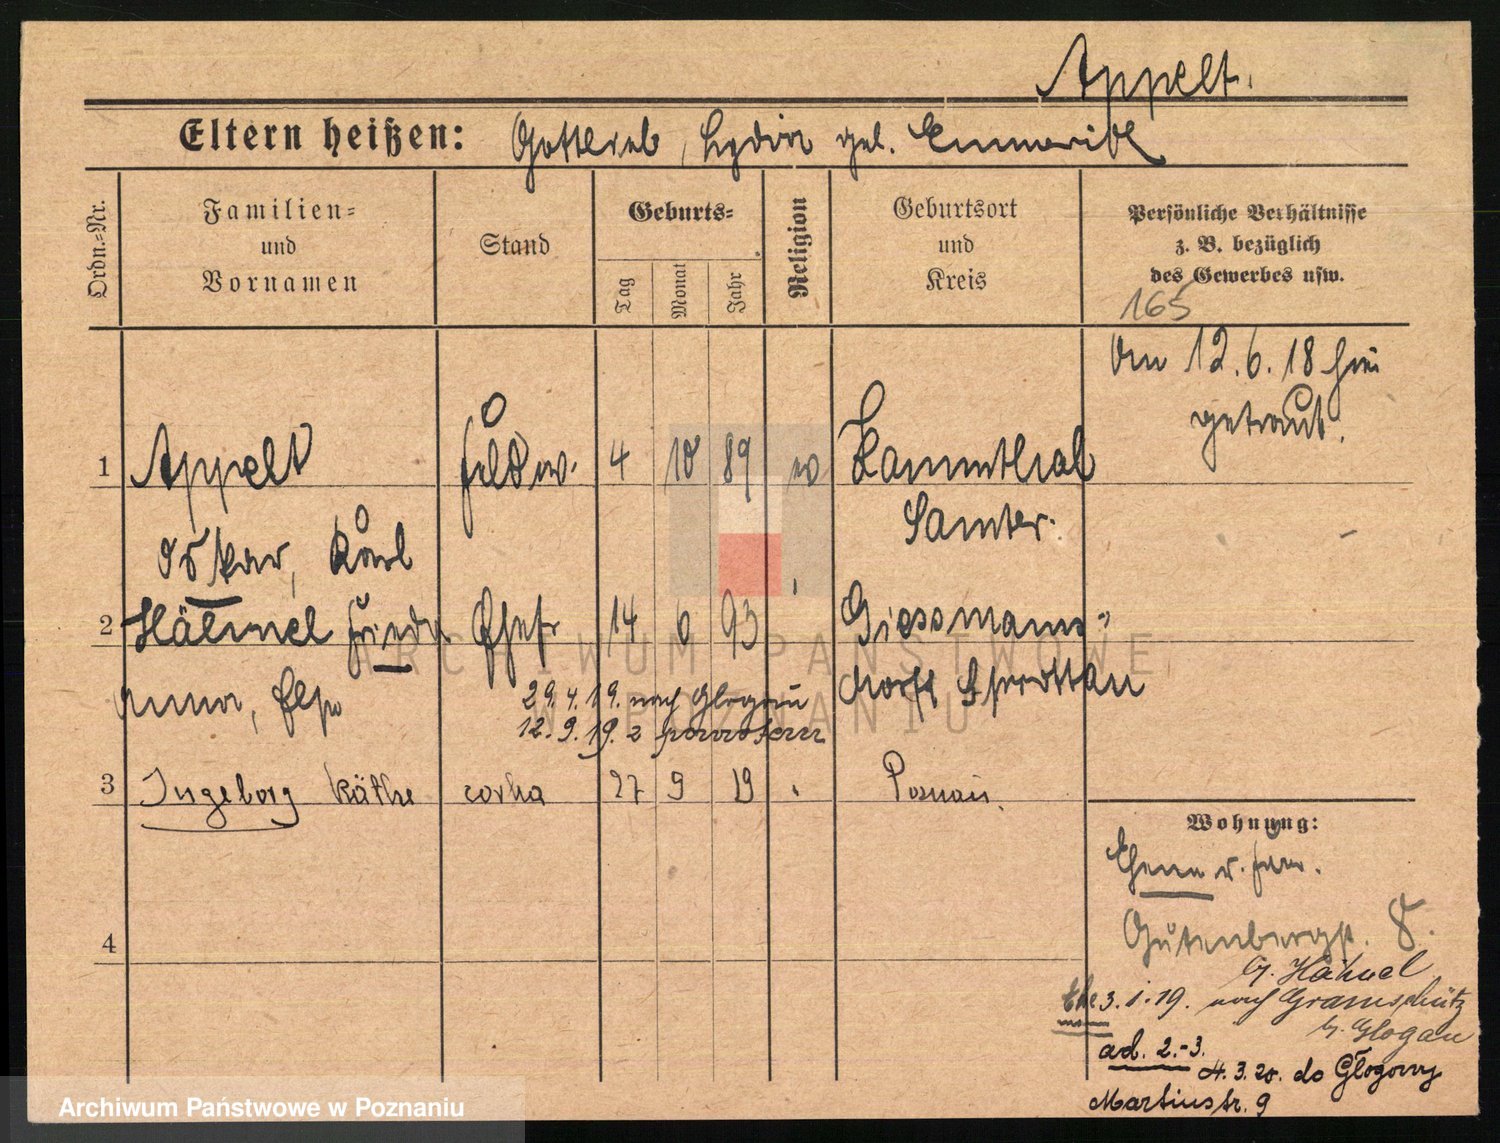 Appelt.
Eltern heißen: Gottlieb, Lydia geb. Emmerich
Ordn.-Nr.
Familien-
und
Vornamen
Stand
Geburts-
Tag
Monat
Jahr
Religion
Geburtsort
und
Kreis
Persönliche Verhältnisse
z. B. bezüglich
des Gewerbes usw.
165
Am 12.6.18 hier
getraut.
1 Appelt Feldw. 4 10 89 ev Lammthal
Samter.
Oskar, Karl
2 Hähnel Frieda Ehefr 14 6 93 Giessmanns-
Anna, Elsa dorff Sprottau
29.4.19. nach Glogau
12.9.19. z powrotem
3 Ingeborg Käthe corka 27 9 19 Poznań.
4
Wohnung:
Gutenbergstr. 8.
b. Hähnel
3.1.19. nach Gramschütz
b. Glogau
ad. 2.-3.
4.3.20. do Głogowy
Martinstr. 9
ARCHIWUM PAŃSTWOWE
W POZNANIU
Archiwum Państwowe w Poznaniu